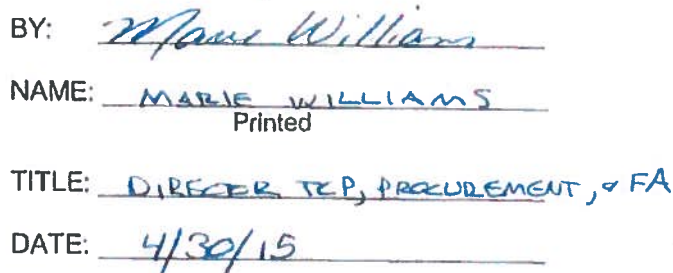 BY: Marie Williams
NAME: MARIE WILLIAMS
Printed
TITLE: DIRECTER TCP, PROCUREMENT, & FA
DATE: 4/30/15